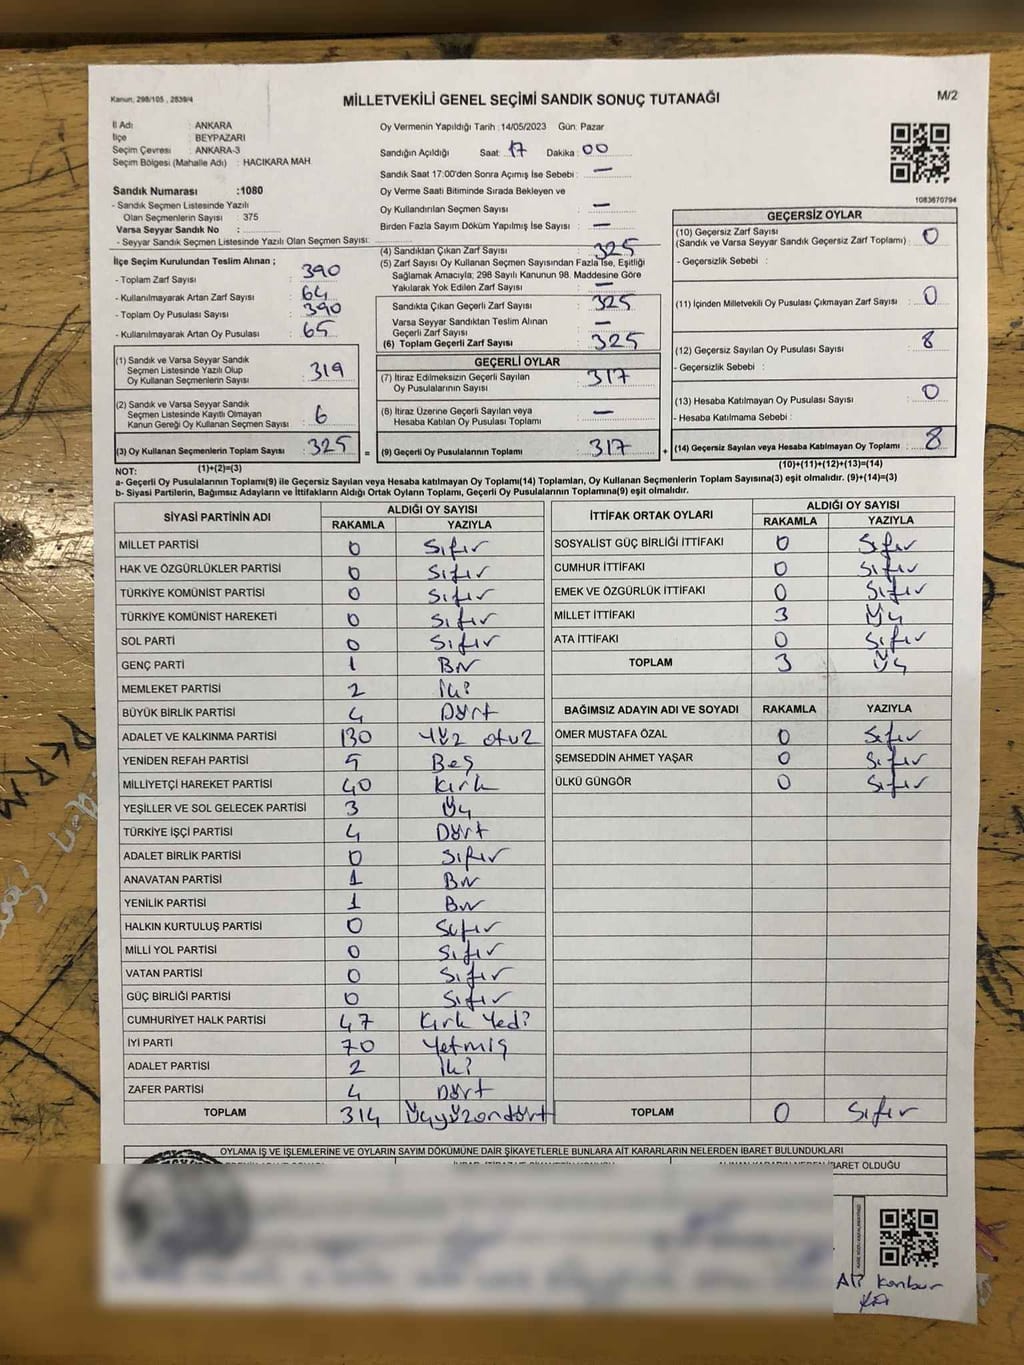 Kanun, 298/105 , 2839/4
MİLLETVEKİLİ GENEL SEÇİMİ SANDIK SONUÇ TUTANAĞI
M/2
İl Adı : ANKARA
İlçe : BEYPAZARI
Seçim Çevresi : ANKARA-3
Seçim Bölgesi (Mahalle Adı) : HACIKARA MAH.
Sandık Numarası :1080
- Sandık Seçmen Listesinde Yazılı
Olan Seçmenlerin Sayısı : 375
Varsa Seyyar Sandık No :
- Seyyar Sandık Seçmen Listesinde Yazılı Olan Seçmen Sayısı:
Oy Vermenin Yapıldığı Tarih :14/05/2023 Gün: Pazar
Sandığın Açıldığı Saat: 17 Dakika : 00
Sandık Saat 17:00'den Sonra Açılmış İse Sebebi : —
Oy Verme Saati Bitiminde Sırada Bekleyen ve
Oy Kullandırılan Seçmen Sayısı : —
Birden Fazla Sayım Döküm Yapılmış İse Sayısı : —
1083670794
İlçe Seçim Kurulundan Teslim Alınan ;
- Toplam Zarf Sayısı : 390
- Kullanılmayarak Artan Zarf Sayısı : 64
- Toplam Oy Pusulası Sayısı : 390
- Kullanılmayarak Artan Oy Pusulası : 65
(1) Sandık ve Varsa Seyyar Sandık
Seçmen Listesinde Yazılı Olup
Oy Kullanan Seçmenlerin Sayısı : 319
(2) Sandık ve Varsa Seyyar Sandık
Seçmen Listesinde Kayıtlı Olmayan
Kanun Gereği Oy Kullanan Seçmen Sayısı : 6
(3) Oy Kullanan Seçmenlerin Toplam Sayısı : 325
(1)+(2)=(3)
(4) Sandıktan Çıkan Zarf Sayısı : 325
(5) Zarf Sayısı Oy Kullanan Seçmen Sayısından Fazla İse, Eşitliği
Sağlamak Amacıyla; 298 Sayılı Kanunun 98. Maddesine Göre
Yakılarak Yok Edilen Zarf Sayısı : —
Sandıkta Çıkan Geçerli Zarf Sayısı : 325
Varsa Seyyar Sandıktan Teslim Alınan
Geçerli Zarf Sayısı : —
(6) Toplam Geçerli Zarf Sayısı : 325
GEÇERLİ OYLAR
(7) İtiraz Edilmeksizin Geçerli Sayılan
Oy Pusulalarının Sayısı : 317
(8) İtiraz Üzerine Geçerli Sayılan veya
Hesaba Katılan Oy Pusulası Toplamı : —
= (9) Geçerli Oy Pusulalarının Toplamı : 317
GEÇERSİZ OYLAR
(10) Geçersiz Zarf Sayısı
(Sandık ve Varsa Seyyar Sandık Geçersiz Zarf Toplamı) : 0
- Geçersizlik Sebebi :
(11) İçinden Milletvekili Oy Pusulası Çıkmayan Zarf Sayısı : 0
(12) Geçersiz Sayılan Oy Pusulası Sayısı : 8
- Geçersizlik Sebebi :
(13) Hesaba Katılmayan Oy Pusulası Sayısı : 0
- Hesaba Katılmama Sebebi :
+ (14) Geçersiz Sayılan veya Hesaba Katılmayan Oy Toplamı : 8
(10)+(11)+(12)+(13)=(14)
NOT:
a- Geçerli Oy Pusulalarının Toplamı(9) ile Geçersiz Sayılan veya Hesaba katılmayan Oy Toplamı(14) Toplamları, Oy Kullanan Seçmenlerin Toplam Sayısına(3) eşit olmalıdır. (9)+(14)=(3)
b- Siyasi Partilerin, Bağımsız Adayların ve İttifakların Aldığı Ortak Oyların Toplamı, Geçerli Oy Pusulalarının Toplamına(9) eşit olmalıdır.
SİYASİ PARTİNİN ADI ALDIĞI OY SAYISI
RAKAMLA YAZIYLA
MİLLET PARTİSİ 0 Sıfır
HAK VE ÖZGÜRLÜKLER PARTİSİ 0 Sıfır
TÜRKİYE KOMÜNİST PARTİSİ 0 Sıfır
TÜRKİYE KOMÜNİST HAREKETİ 0 Sıfır
SOL PARTİ 0 Sıfır
GENÇ PARTİ 1 Bir
MEMLEKET PARTİSİ 2 İki
BÜYÜK BİRLİK PARTİSİ 4 Dört
ADALET VE KALKINMA PARTİSİ 130 Yüz otuz
YENİDEN REFAH PARTİSİ 5 Beş
MİLLİYETÇİ HAREKET PARTİSİ 40 Kırk
YEŞİLLER VE SOL GELECEK PARTİSİ 3 Üç
TÜRKİYE İŞÇİ PARTİSİ 4 Dört
ADALET BİRLİK PARTİSİ 0 Sıfır
ANAVATAN PARTİSİ 1 Bir
YENİLİK PARTİSİ 1 Bir
HALKIN KURTULUŞ PARTİSİ 0 Sıfır
MİLLİ YOL PARTİSİ 0 Sıfır
VATAN PARTİSİ 0 Sıfır
GÜÇ BİRLİĞİ PARTİSİ 0 Sıfır
CUMHURİYET HALK PARTİSİ 47 Kırk Yedi
İYİ PARTİ 70 Yetmiş
ADALET PARTİSİ 2 İki
ZAFER PARTİSİ 4 Dört
TOPLAM 314 Üçyüzondört
İTTİFAK ORTAK OYLARI ALDIĞI OY SAYISI
RAKAMLA YAZIYLA
SOSYALİST GÜÇ BİRLİĞİ İTTİFAKI 0 Sıfır
CUMHUR İTTİFAKI 0 Sıfır
EMEK VE ÖZGÜRLÜK İTTİFAKI 0 Sıfır
MİLLET İTTİFAKI 3 Üç
ATA İTTİFAKI 0 Sıfır
TOPLAM 3 Üç
BAĞIMSIZ ADAYIN ADI VE SOYADI RAKAMLA YAZIYLA
ÖMER MUSTAFA ÖZAL 0 Sıfır
ŞEMSEDDİN AHMET YAŞAR 0 Sıfır
ÜLKÜ GÜNGÖR 0 Sıfır
TOPLAM 0 Sıfır
OYLAMA İŞ VE İŞLEMLERİNE VE OYLARIN SAYIM DÖKÜMÜNE DAİR ŞİKAYETLERLE BUNLARA AİT KARARLARIN NELERDEN İBARET BULUNDUKLARI
İBARET OLDUĞU
Ali Kanbur